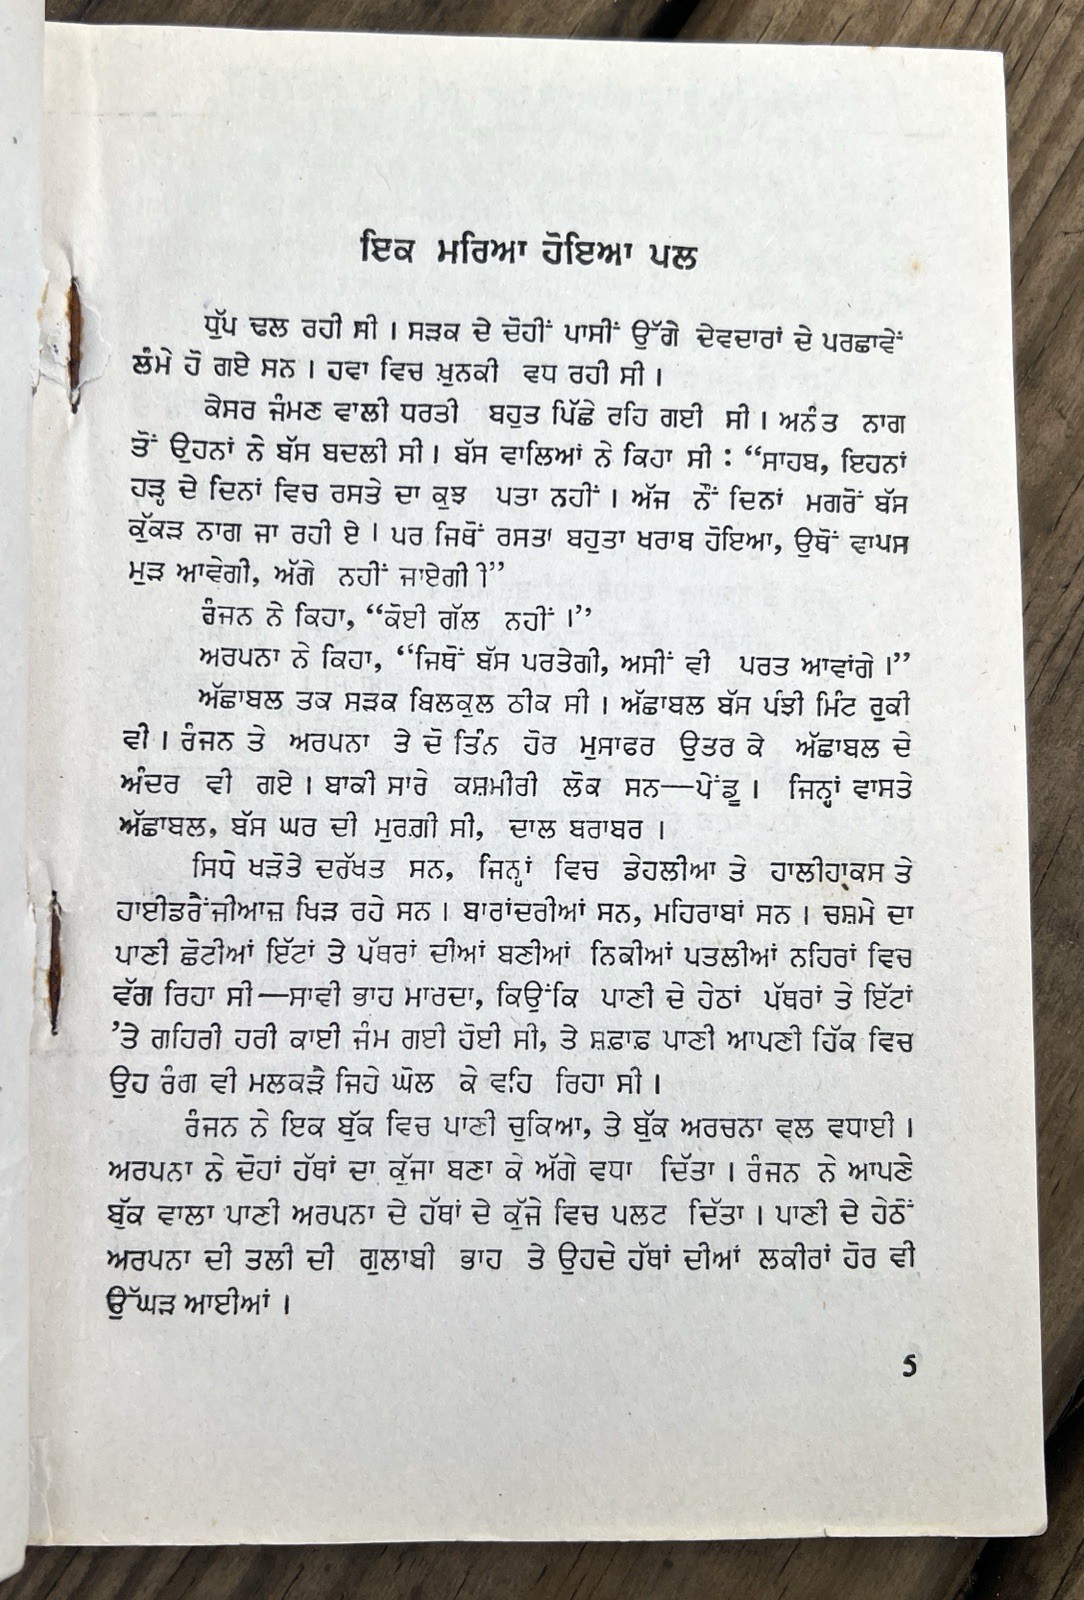 ਇਕ ਮਰਿਆ ਹੋਇਆ ਪਲ
ਧੁੱਪ ਢਲ ਰਹੀ ਸੀ । ਸੜਕ ਦੇ ਦੋਹੀਂ ਪਾਸੀਂ ਉੱਗੇ ਦੇਵਦਾਰਾਂ ਦੇ ਪਰਛਾਵੇਂ
ਲੰਮੇ ਹੋ ਗਏ ਸਨ । ਹਵਾ ਵਿਚ ਖ਼ੁਨਕੀ ਵਧ ਰਹੀ ਸੀ ।
ਕੇਸਰ ਜੰਮਣ ਵਾਲੀ ਧਰਤੀ ਬਹੁਤ ਪਿੱਛੇ ਰਹਿ ਗਈ ਸੀ । ਅਨੰਤ ਨਾਗ
ਤੋਂ ਉਹਨਾਂ ਨੇ ਬੱਸ ਬਦਲੀ ਸੀ । ਬੱਸ ਵਾਲਿਆਂ ਨੇ ਕਿਹਾ ਸੀ : “ਸਾਹਬ, ਇਹਨਾਂ
ਹੜ੍ਹ ਦੇ ਦਿਨਾਂ ਵਿਚ ਰਸਤੇ ਦਾ ਕੁਝ ਪਤਾ ਨਹੀਂ । ਅੱਜ ਨੌਂ ਦਿਨਾਂ ਮਗਰੋਂ ਬੱਸ
ਕੁੱਕੜ ਨਾਗ ਜਾ ਰਹੀ ਏ । ਪਰ ਜਿਥੋਂ ਰਸਤਾ ਬਹੁਤਾ ਖਰਾਬ ਹੋਇਆ, ਉਥੋਂ ਵਾਪਸ
ਮੁੜ ਆਵੇਗੀ, ਅੱਗੇ ਨਹੀਂ ਜਾਏਗੀ ।”
ਰੰਜਨ ਨੇ ਕਿਹਾ, “ਕੋਈ ਗੱਲ ਨਹੀਂ ।”
ਅਰਪਨਾ ਨੇ ਕਿਹਾ, “ਜਿਥੋਂ ਬੱਸ ਪਰਤੇਗੀ, ਅਸੀਂ ਵੀ ਪਰਤ ਆਵਾਂਗੇ ।”
ਅੱਛਾਬਲ ਤਕ ਸੜਕ ਬਿਲਕੁਲ ਠੀਕ ਸੀ । ਅੱਛਾਬਲ ਬੱਸ ਪੰਝੀ ਮਿੰਟ ਰੁਕੀ
ਵੀ । ਰੰਜਨ ਤੇ ਅਰਪਨਾ ਤੇ ਦੋ ਤਿੰਨ ਹੋਰ ਮੁਸਾਫਰ ਉਤਰ ਕੇ ਅੱਛਾਬਲ ਦੇ
ਅੰਦਰ ਵੀ ਗਏ । ਬਾਕੀ ਸਾਰੇ ਕਸ਼ਮੀਰੀ ਲੋਕ ਸਨ—ਪੇਂਡੂ । ਜਿਨ੍ਹਾਂ ਵਾਸਤੇ
ਅੱਛਾਬਲ, ਬੱਸ ਘਰ ਦੀ ਮੁਰਗ਼ੀ ਸੀ, ਦਾਲ ਬਰਾਬਰ ।
ਸਿਧੇ ਖੜੋਤੇ ਦਰੱਖਤ ਸਨ, ਜਿਨ੍ਹਾਂ ਵਿਚ ਡੇਹਲੀਆ ਤੇ ਹਾਲੀਹਾਕਸ ਤੇ
ਹਾਈਡਰੈਂਜੀਆਜ਼ ਖਿੜ ਰਹੇ ਸਨ । ਬਾਰਾਂਦਰੀਆਂ ਸਨ, ਮਹਿਰਾਬਾਂ ਸਨ । ਚਸ਼ਮੇ ਦਾ
ਪਾਣੀ ਛੋਟੀਆਂ ਇੱਟਾਂ ਤੇ ਪੱਥਰਾਂ ਦੀਆਂ ਬਣੀਆਂ ਨਿਕੀਆਂ ਪਤਲੀਆਂ ਨਹਿਰਾਂ ਵਿਚ
ਵੱਗ ਰਿਹਾ ਸੀ—ਸਾਵੀ ਭਾਹ ਮਾਰਦਾ, ਕਿਉਂਕਿ ਪਾਣੀ ਦੇ ਹੇਠਾਂ ਪੱਥਰਾਂ ਤੇ ਇੱਟਾਂ
’ਤੇ ਗਹਿਰੀ ਹਰੀ ਕਾਈ ਜੰਮ ਗਈ ਹੋਈ ਸੀ, ਤੇ ਸ਼ਫ਼ਾਫ਼ ਪਾਣੀ ਆਪਣੀ ਹਿੱਕ ਵਿਚ
ਉਹ ਰੰਗ ਵੀ ਮਲਕੜੈ ਜਿਹੇ ਘੋਲ ਕੇ ਵਹਿ ਰਿਹਾ ਸੀ ।
ਰੰਜਨ ਨੇ ਇਕ ਬੁੱਕ ਵਿਚ ਪਾਣੀ ਚੁਕਿਆ, ਤੇ ਬੁੱਕ ਅਰਚਨਾ ਵਲ ਵਧਾਈ ।
ਅਰਪਨਾ ਨੇ ਦੋਹਾਂ ਹੱਥਾਂ ਦਾ ਕੁੱਜਾ ਬਣਾ ਕੇ ਅੱਗੇ ਵਧਾ ਦਿੱਤਾ । ਰੰਜਨ ਨੇ ਆਪਣੇ
ਬੁੱਕ ਵਾਲਾ ਪਾਣੀ ਅਰਪਨਾ ਦੇ ਹੱਥਾਂ ਦੇ ਕੁੱਜੇ ਵਿਚ ਪਲਟ ਦਿੱਤਾ । ਪਾਣੀ ਦੇ ਹੇਠੋਂ
ਅਰਪਨਾ ਦੀ ਤਲੀ ਦੀ ਗੁਲਾਬੀ ਭਾਹ ਤੇ ਉਹਦੇ ਹੱਥਾਂ ਦੀਆਂ ਲਕੀਰਾਂ ਹੋਰ ਵੀ
ਉੱਘੜ ਆਈਆਂ ।
5